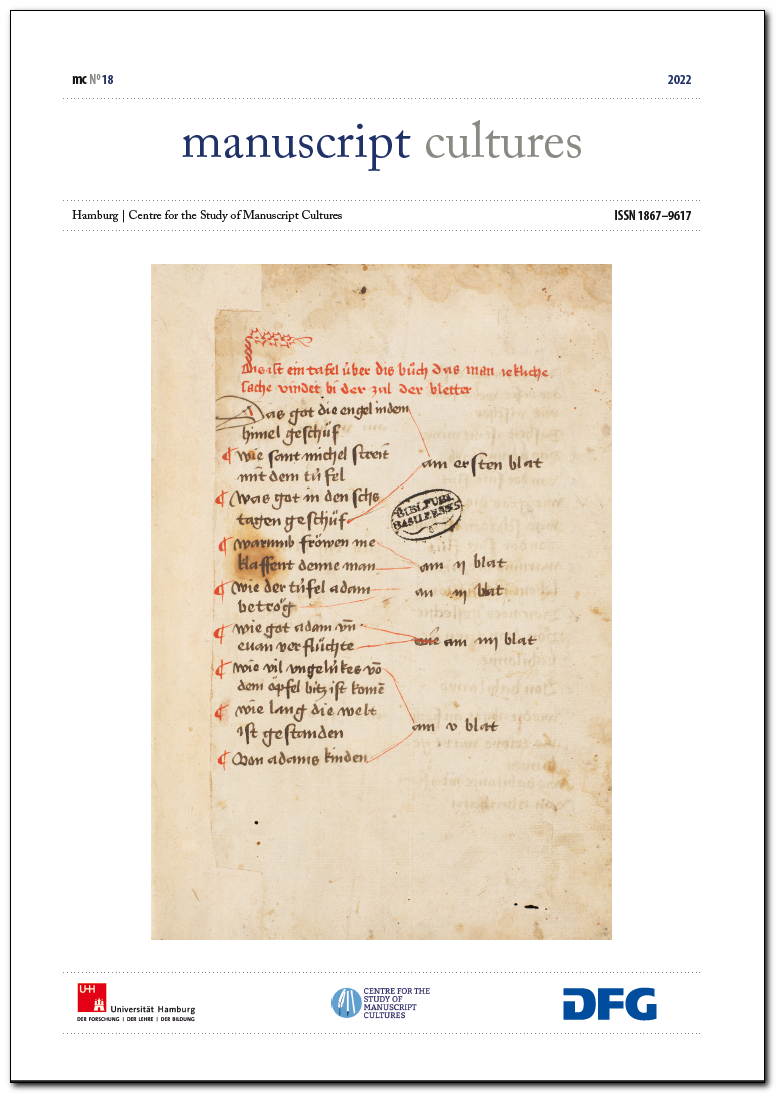 mc Nº 18
2022
manuscript cultures
Hamburg | Centre for the Study of Manuscript Cultures
ISSN 1867–9617
Dis ist ein tafel über dis bůch das man iekliche
sache vindet bi der zal der bletter
Das got die engel in dem
himel geschůf
wie sant michel streit
mit dem tüfel
am ersten blat
Was got in den sehs
tagen geschůf
BIBL. PUBL.
BASILEENSIS
warumb fröwen me
klaffent denne man
am ij blat
wie der tüfel adam
betrög
an iij blat
wie got adam vn̄
euan verflůchte
am iiij blat
wie vil vngelükes vō
dem öpfel bitz ist komē
wie lang die welt
ist gestanden
am v blat
Von adams kinden
UH
Universität Hamburg
DER FORSCHUNG | DER LEHRE | DER BILDUNG
CENTRE FOR THE
STUDY OF
MANUSCRIPT
CULTURES
DFG